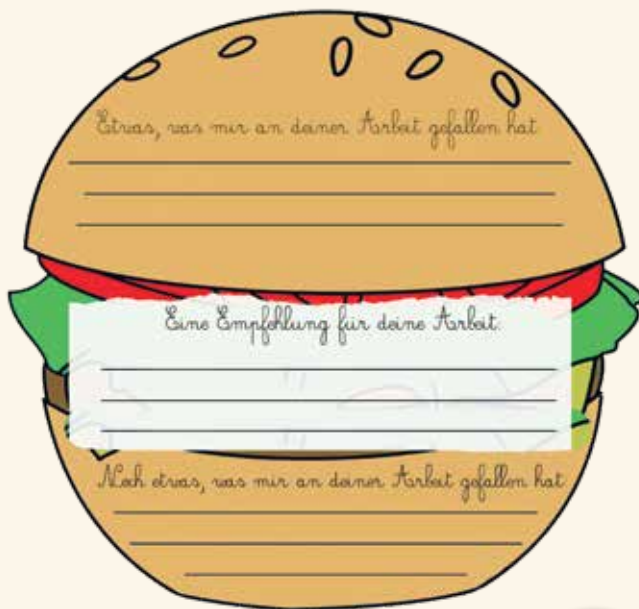 Etwas, was mir an deiner Arbeit gefallen hat
Eine Empfehlung für deine Arbeit:
Noch etwas, was mir an deiner Arbeit gefallen hat